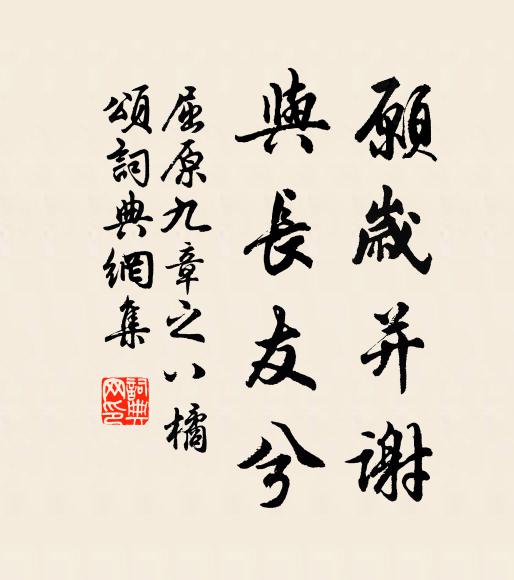 願歲并謝
與長友兮
屈原九章之八橘
頌詞典網集
詞典網印